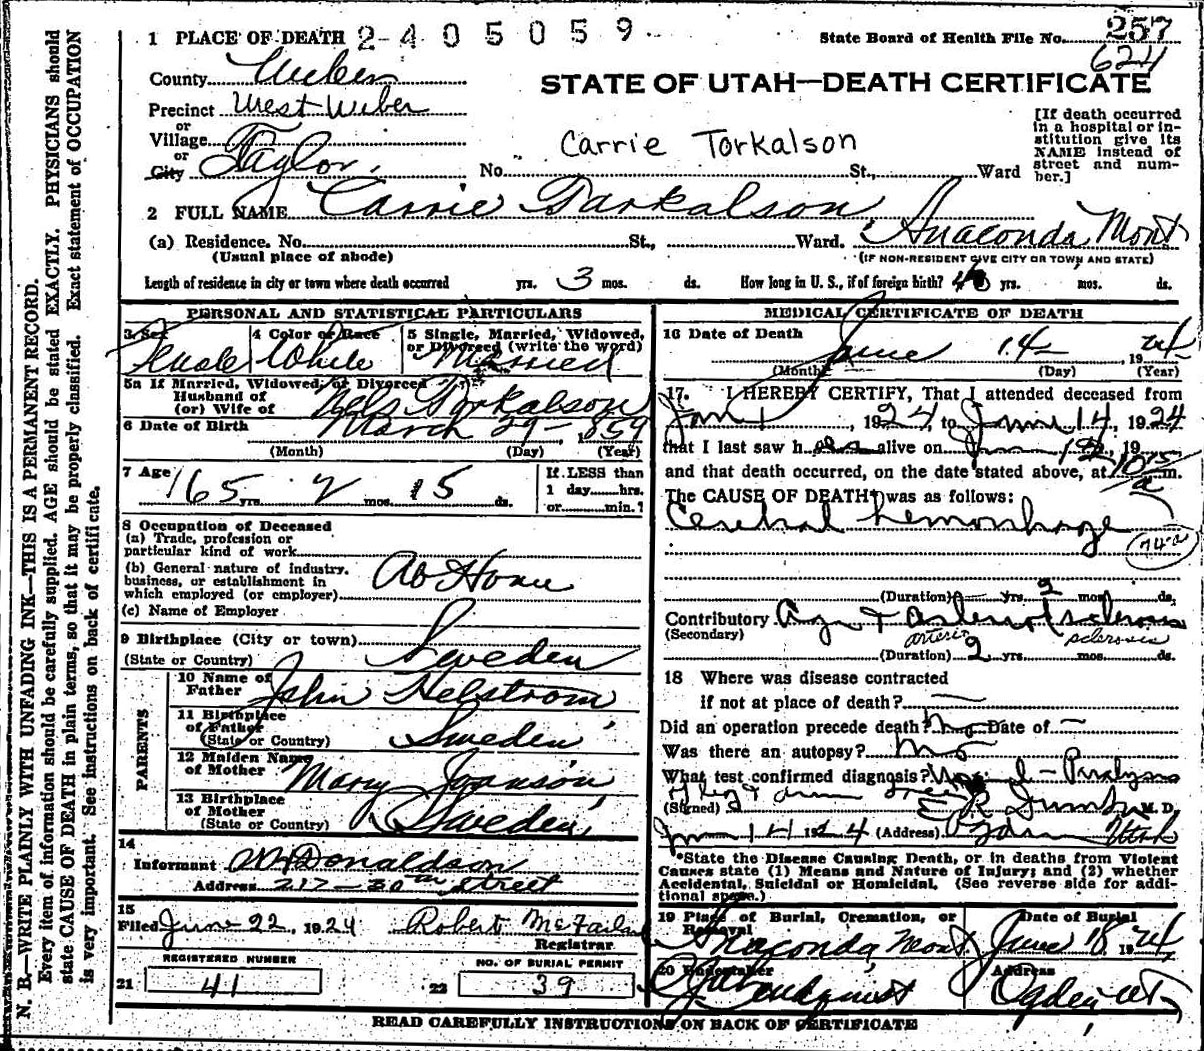 1 PLACE OF DEATH 2405059
State Board of Health File No. 257
624
County Weber
STATE OF UTAH—DEATH CERTIFICATE
Precinct West Weber
or
Village
or
City Taylor
Carrie Torkalson
No. St., Ward
[If death occurred
in a hospital or in-
stitution give its
NAME instead of
street and num-
ber.]
2 FULL NAME Carrie Tarkalson
(a) Residence. No. St., Ward. Anaconda, Mont
(Usual place of abode)
(IF NON-RESIDENT GIVE CITY OR TOWN AND STATE)
Length of residence in city or town where death occurred yrs. 3 mos. ds. How long in U. S., if of foreign birth? yrs. mos. ds.
PERSONAL AND STATISTICAL PARTICULARS
3 Sex
Female
4 Color or Race
White
5 Single, Married, Widowed,
or Divorced (write the word)
Married
5a If Married, Widowed, or Divorced
Husband of
(or) Wife of Nels Torkalson
6 Date of Birth March 29 - 1859
(Month) (Day) (Year)
7 Age 65 yrs. 2 mos. 15 ds.
If LESS than
1 day......hrs.
or......min.?
8 Occupation of Deceased
(a) Trade, profession or
particular kind of work
(b) General nature of industry,
business, or establishment in
which employed (or employer) At Home
(c) Name of Employer
9 Birthplace (City or town)
(State or Country) Sweden
PARENTS
10 Name of
Father John Helstrom
11 Birthplace
of Father
(State or Country) Sweden
12 Maiden Name
of Mother Mary Joanson
13 Birthplace
of Mother
(State or Country) Sweden
14
Informant Donaldson
Address 217 - 30th Street
15
Filed June 22, 1924 Robert McFarland
Registrar
REGISTERED NUMBER
21 41
NO. OF BURIAL PERMIT
22 39
MEDICAL CERTIFICATE OF DEATH
16 Date of Death
June 14 1924
(Month) (Day) (Year)
17. I HEREBY CERTIFY, That I attended deceased from
Jan 1, 1924, to June 14, 1924
that I last saw her alive on June, 19
and that death occurred, on the date stated above, at 1015 a m.
The CAUSE OF DEATH* was as follows:
Cerebral hemorrhage
74a
(Duration) yrs. 2 mos. ds.
Contributory Age & Arteriosclerosis
(Secondary) arterio sclerosis
(Duration) 2 yrs. mos. ds.
18 Where was disease contracted
if not at place of death?
Did an operation precede death? no Date of
Was there an autopsy? no
What test confirmed diagnosis? Paralysis
leg & arm
(Signed) M. D.
June 14 1924 (Address) Ogden Utah
*State the Disease Causing Death, or in deaths from Violent
Causes state (1) Means and Nature of Injury; and (2) whether
Accidental, Suicidal or Homicidal. (See reverse side for addi-
tional space.)
19 Place of Burial, Cremation, or
Removal
Anaconda, Mont
Date of Burial
June 18 1924
20 Undertaker
Lindquist
Address
Ogden Ut
READ CAREFULLY INSTRUCTIONS ON BACK OF CERTIFICATE
N. B.—WRITE PLAINLY WITH UNFADING INK—THIS IS A PERMANENT RECORD.
Every item of information should be carefully supplied. AGE should be stated EXACTLY. PHYSICIANS should
state CAUSE OF DEATH in plain terms, so that it may be properly classified. Exact statement of OCCUPATION
is very important. See instructions on back of certificate.